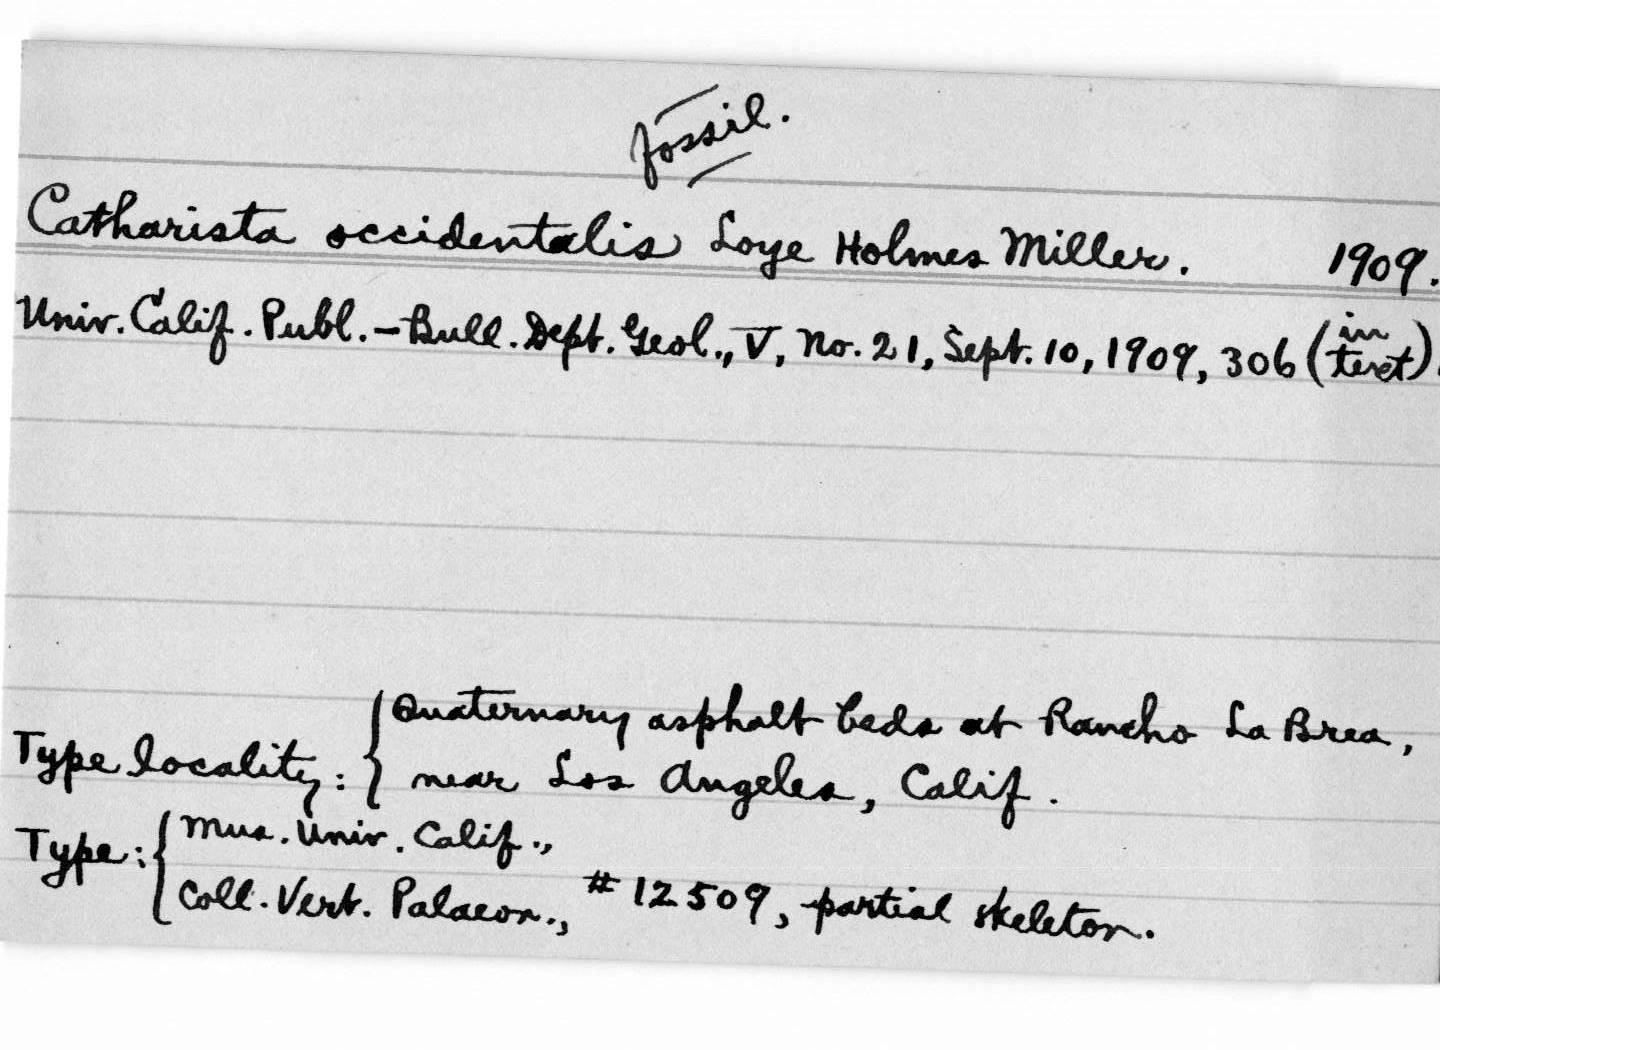 fossil.
Catharista occidentalis Loye Holmes Miller. 1909.
Univ. Calif. Publ. - Bull. Dept. Geol., V, No. 21, Sept. 10, 1909, 306 (in text).
Type locality: { Quaternary asphalt beds at Rancho La Brea,
near Los Angeles, Calif.
Type: { Mus. Univ. Calif.,
Coll. Vert. Palaeon., # 12509, partial skeleton.